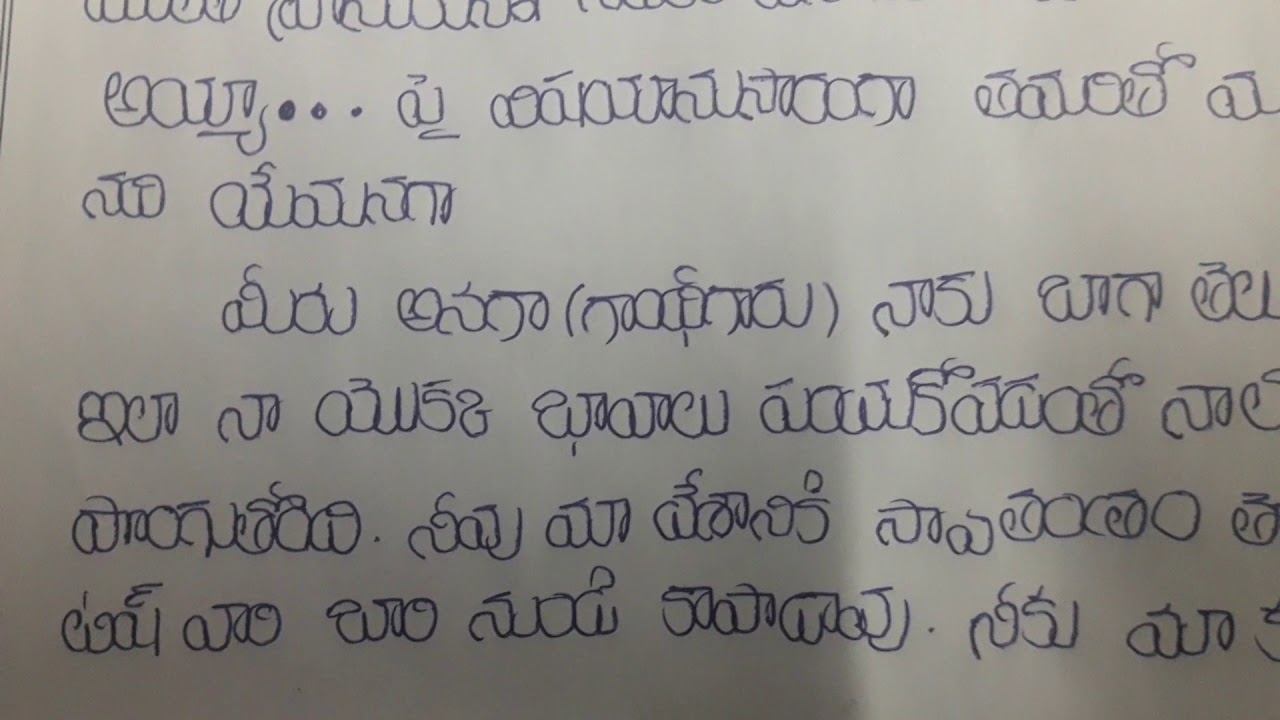 అయ్యా... పై విషయానుసారంగా తమరితో మ
నవి యేమనగా
మీరు అనగా (గాంధీగారు) నాకు బాగా తెలు
ఇలా నా యొకకి భావాలు పంచుకోవడంతో నాలో
పొంగుతోంది. నీవు మా దేశానికి స్వాతంత్రం తె
టిష్ వారి బారి నుండి కాపాడావు. నీకు మా